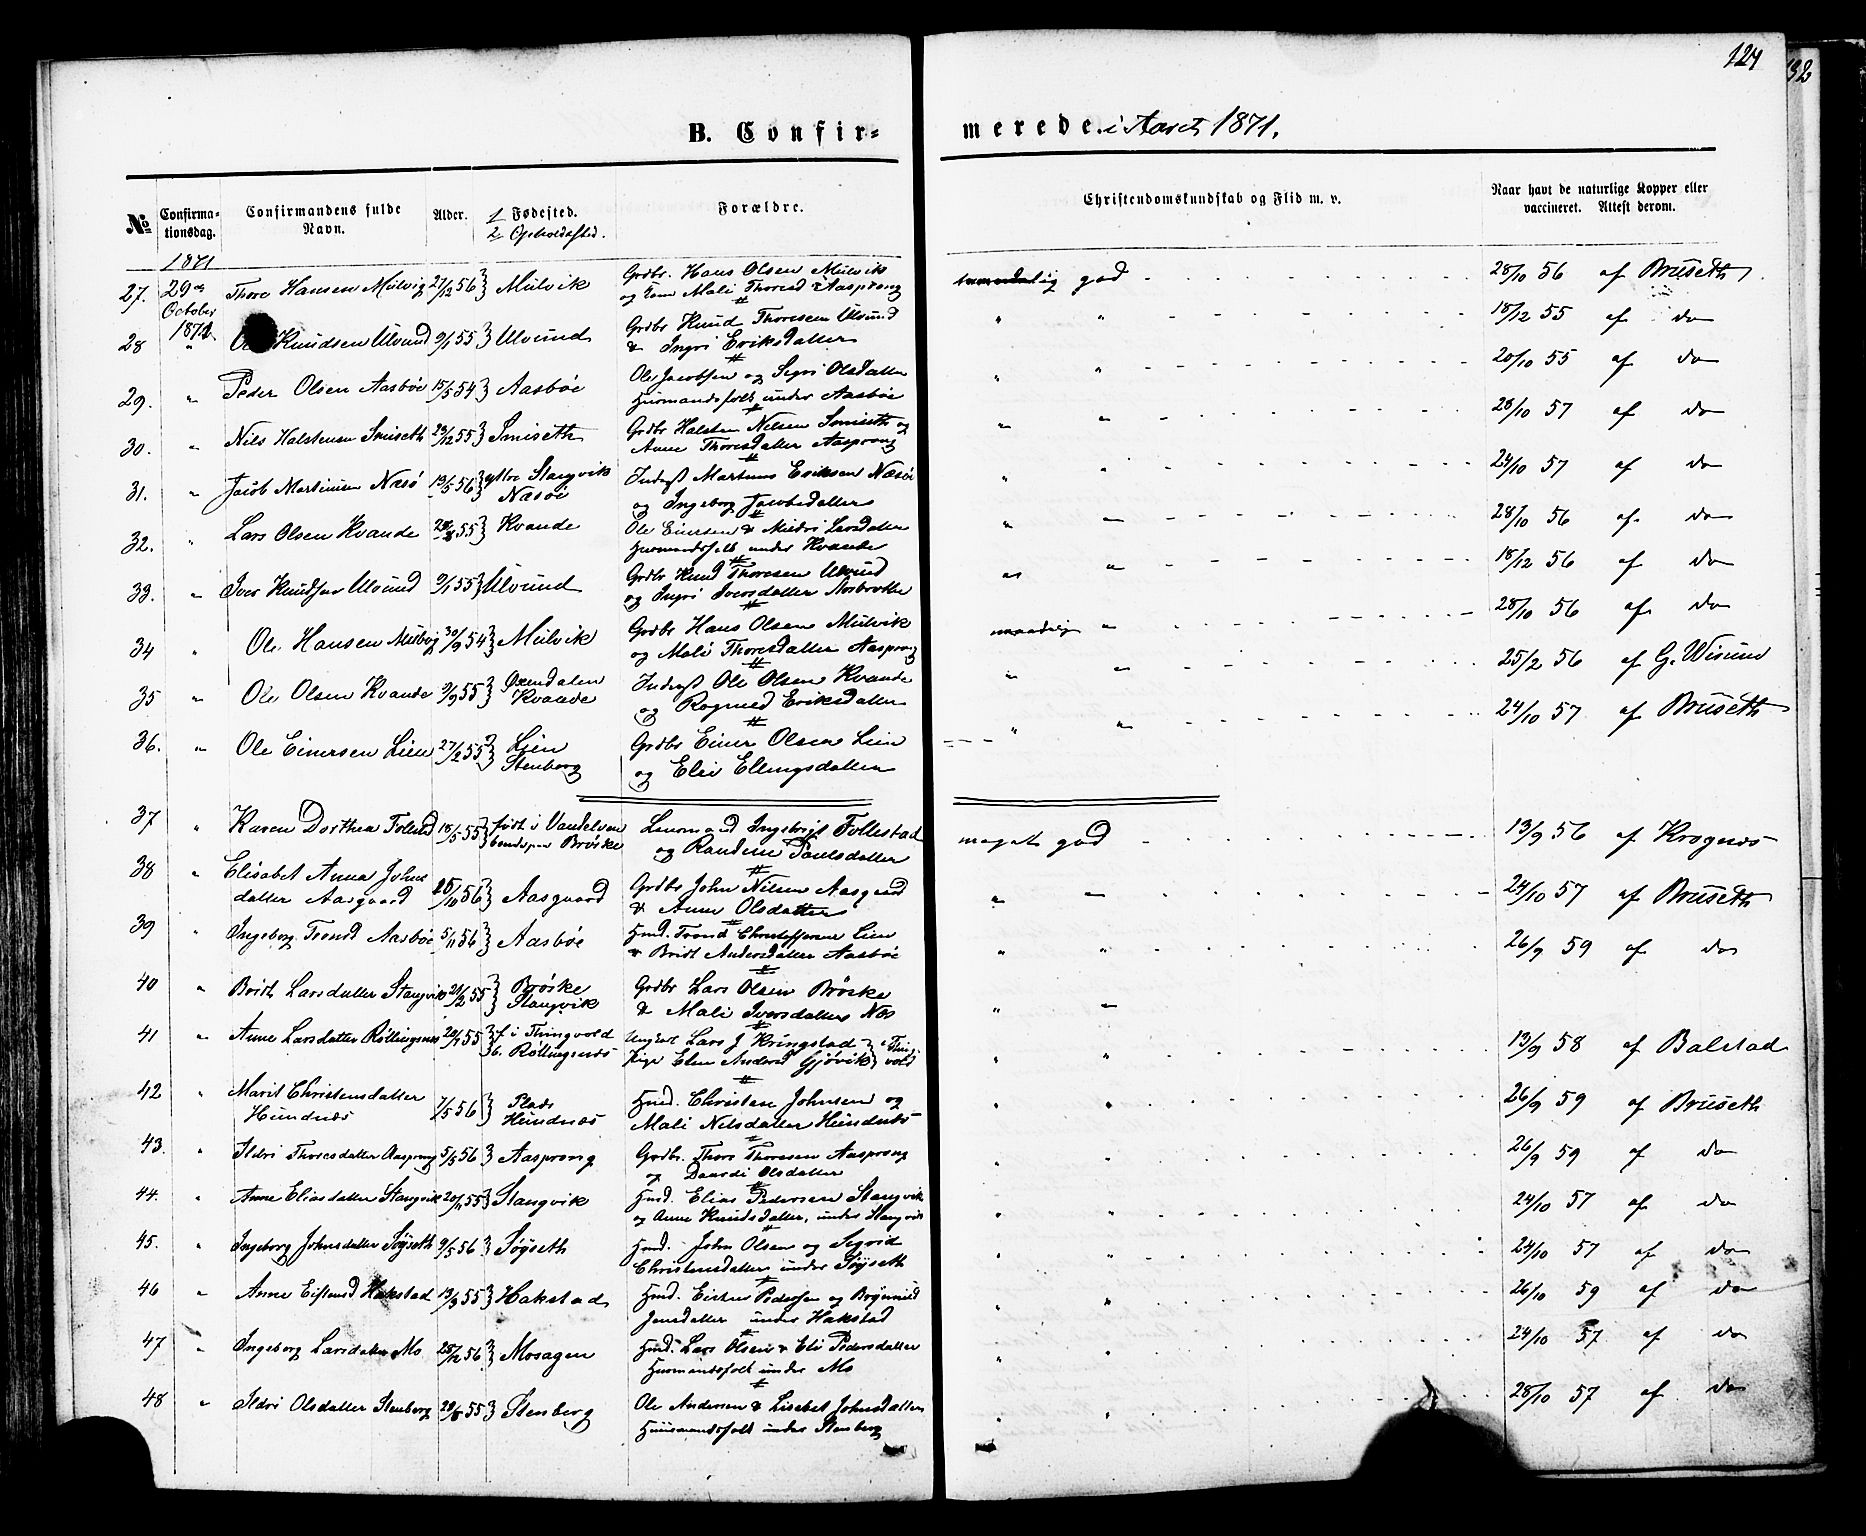 124
32
B. Confirmerede i Aaret 1871.
No Confirmationsdag. Confirmandens fulde Navn. Alder. 1 Fødested. 2 Opholdssted. Forældre. Christendomskundskab og Flid m. v. Naar havt de naturlige Kopper eller vaccineret. Attest derom.
1871
27. 29de October 1871 Thore Hansen Mulvig 27/12 56 } Mulvik Grdbr. Hans Olsen Mulvik og Kone Mali Thoresd Aasprong god 28/10 56 af Bruseth
28 " Knudsen Ulvund 9/1 55 } Ulvund Grdbr Knud Thoresen Ulvund & Ingri Eriksdatter " " 18/12 55 af do
29. " Peder Olsen Aasbøe 15/5 54 } Aasbøe Ole Jacobsen og Sigri Olsdatter Huusmandsfolk under Aasbøe " " 20/10 55 af do
30. " Nils Halstensen Smiseth 23/12 55 } Smiseth Grdbr Halsten Nilsen Smiseth og Anne Thoresdatter Aasprong " " 28/10 57 af do
31. " Jacob Martinusen Næsø 13/5 56 } Ytre Stangvik Næsøe Inderst Martinus Eriksen Næsøe og Ingeborg Jacobsdatter " " 24/10 57 af do
32. " Lars Olsen Kvande 55 } Kvande Ole Einersen & Mildri Larsdatter Huusmandsfolk under Kvande " " 28/10 56 af do
33. " Iver Knudsen Ulvund 9/1 55 } Ulvund Grdbr Knud Thoresen Ulvund og Ingri Iversdatter " " 18/12 56 af do
34 " Ole Hansen Mulvig 30/9 54 } Mulvik Grdbr Hans Olsen Mulvik og Mali Thoresdatter Aasprong maadelig " 28/10 56 af do
35 " Ole Olsen Kvande 9/9 55 } Øxendalen Kvande Inderst Ole Olsen Kvande og Ragnild Eriksdatter " " 25/2 56 af G. Wiund
36. " Ole Einersen Lien 27/2 55 } Lien Stenberg Grdbr Einer Olsen Lien og Elsi Ellingsdatter " " 24/10 57 af Bruseth
37 " Karen Dorthea Follestad 18/5 55 } født i boende paa Brøske Lensmand Ingebrigt Follestad og Randine Paulsdatter meget god 13/9 56 af Krognæs
38 " Elisabet Anna Johnsdatter Aasgaard 56 } Aasgaard Grdbr John Nilsen Aasgaard & Anne Olsdatter " " 24/10 57 af Bruseth
39 " Ingeborg Trondd Aasbøe 5/11 56 } Aasbøe Hmd. Trond Christoffersen Lien & Bridt Andersdatter Aasbøe " " 26/9 59 af do
40 " Bridt Larsdatter Stangvik 21/2 55 } Brøske Stangvik Grdbr Lars Olsen Brøske & Mali Iversdatter Næs " "
41 " Anne Larsdatter Røttingsnæs 55 } f. i Thingvold b. Røttingsnæs Ungkarl Lars J Kringstad Pige Elen Andersd Gjøvik } i Thingvold " " 13/9 58 af Balstad
42 " Marit Christensdatter Hundnæs 7/5 56 } Plads Hundnæs Hmd. Christen Johnsen og Mali Nilsdatter Hundnæs " " 26/9 59 af Bruseth
43. " Ildri Thoresdatter Aasprong 5/5 56 } Aasprong Grdbr. Thore Thoresen Aasprong og Daardi Olsdatter " " 26/9 59 af do
44. " Anne Eliasdatter Stangvik 20/11 55 } Stangvik Hmd. Elias Pedersen Stangvik og Anne Knudsdatter, under Stangvik " " 24/10 57 af do
45. " Ingeborg Johnsdatter Søyseth 9/5 56 } Søyseth Hmd. John Olsen og Segrid Christensdatter under Søyseth " " 24/10 57 af do
46 " Anne Eistensd Hakstad 13/3 55 } Hakstad Hmd. Eisten Pedersen og Brynnild Jensdatter under Hakstad " " 26/10 59 af do
47 " Ingeborg Larsdatter Mo 25/12 56 } Mosagen Hmd. Lars Olsen & Eli Pedersdatter Huusmandsfolk under Mo " " 24/10 57 af do
48 " Ildri Olsdatter Stenberg 29/8 55 } Stenberg Ole Andersen & Lisebet Johnsdatter Huusmandsfolk under Stenberg " " 28/10 57 af do